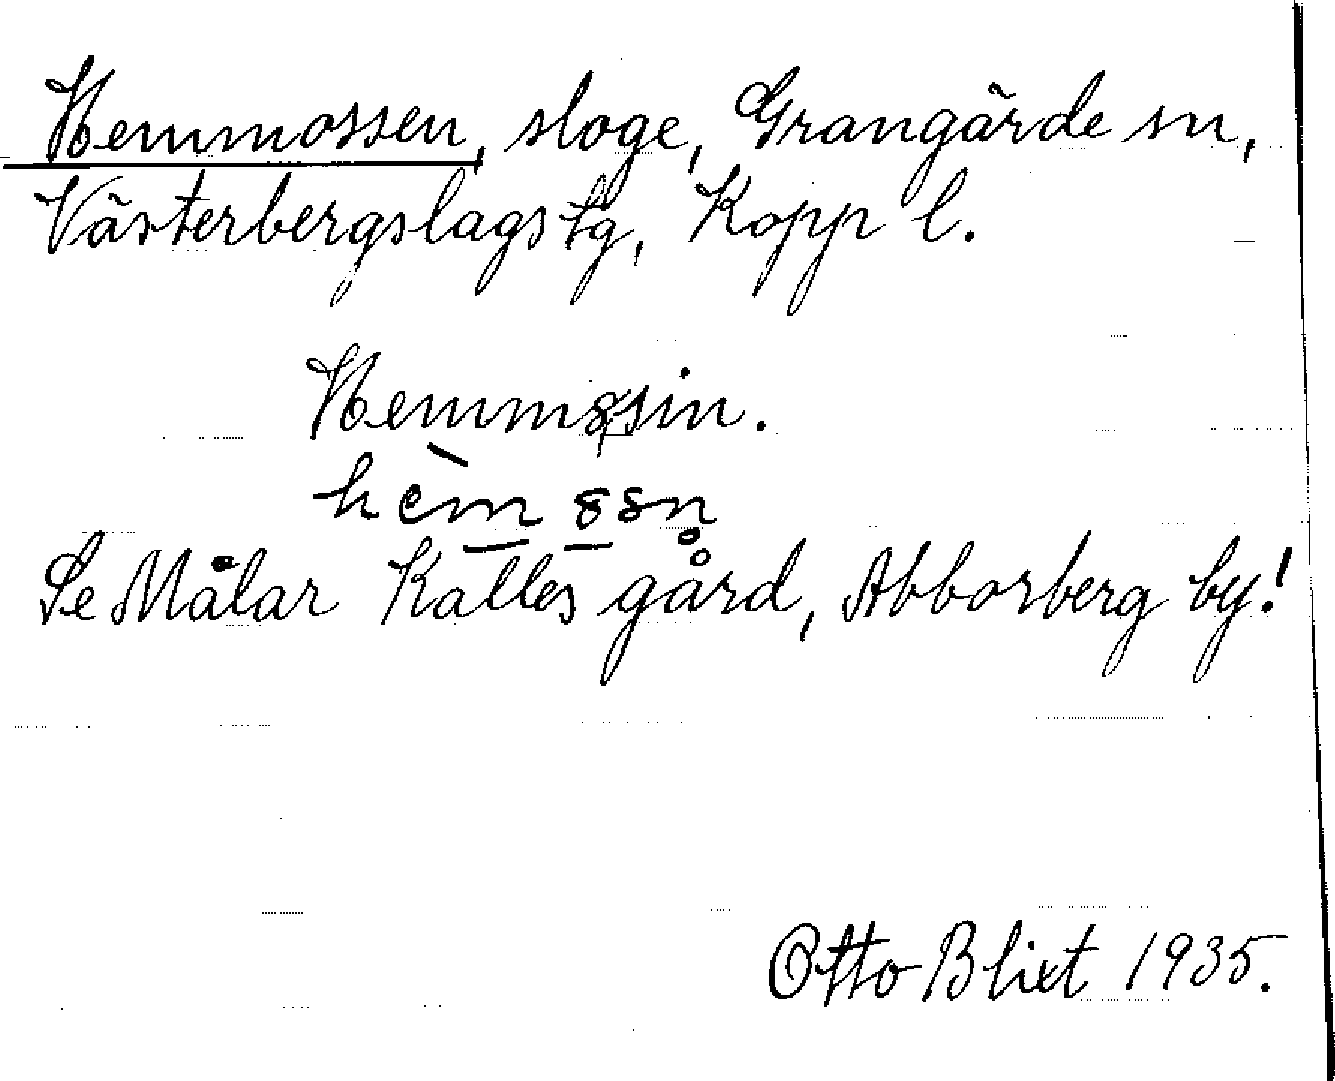 Hemmossen, sloge, Grangärde sn,
Västerbergslags tg, Kopp l.
Hemmåsin.
Se Målar Kalles gård, Abborberg by!
Otto Blixt 1935.